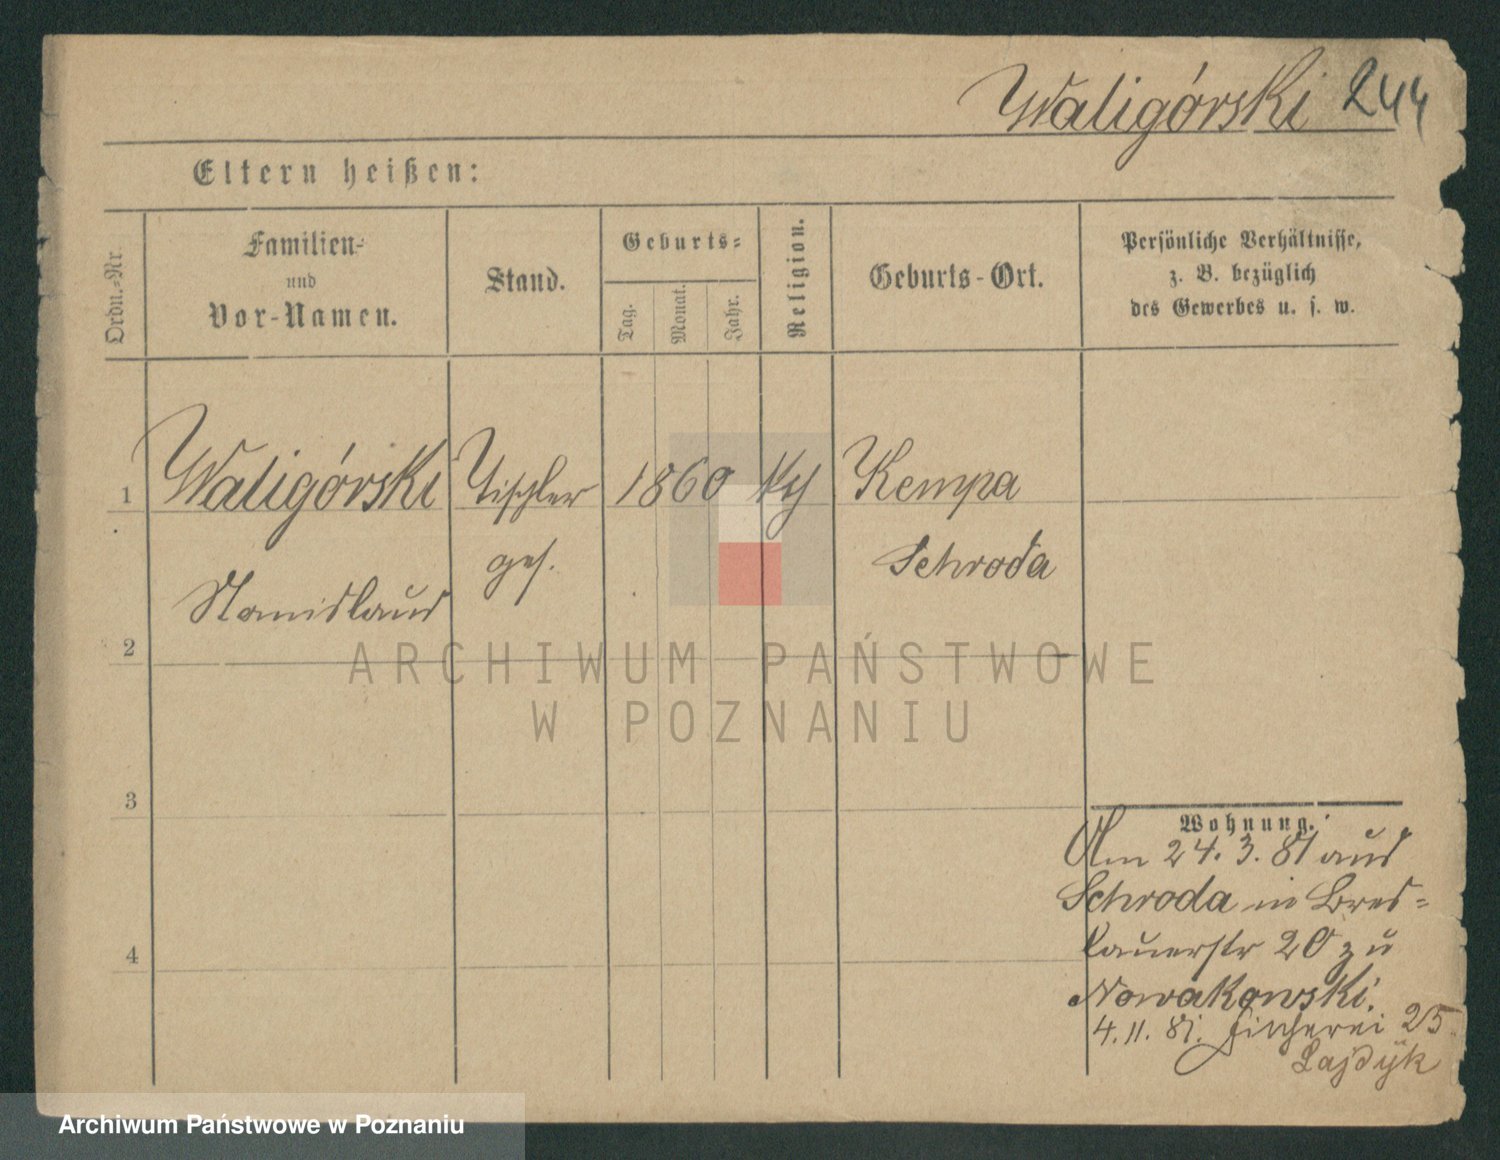 Waligórski 244
Eltern heißen:
Ordn.-Nr.
Familien-
und
Vor-Namen.
Stand.
Geburts-
Tag.
Monat.
Jahr.
Religion.
Geburts-Ort.
Persönliche Verhältnisse,
z. B. bezüglich
des Gewerbes u. s. w.
1 Waligórski Tischler 1860 Kempa
ges. Schroda
Stanislaus
2
ARCHIWUM PAŃSTWOWE
W POZNANIU
3
Wohnung.
Am 24. 3. 81 aus
Schroda in Bres-
lauerstr 20 zu
4
Nowakowski.
4. 11. 81. Fischerei 25
Archiwum Państwowe w Poznaniu